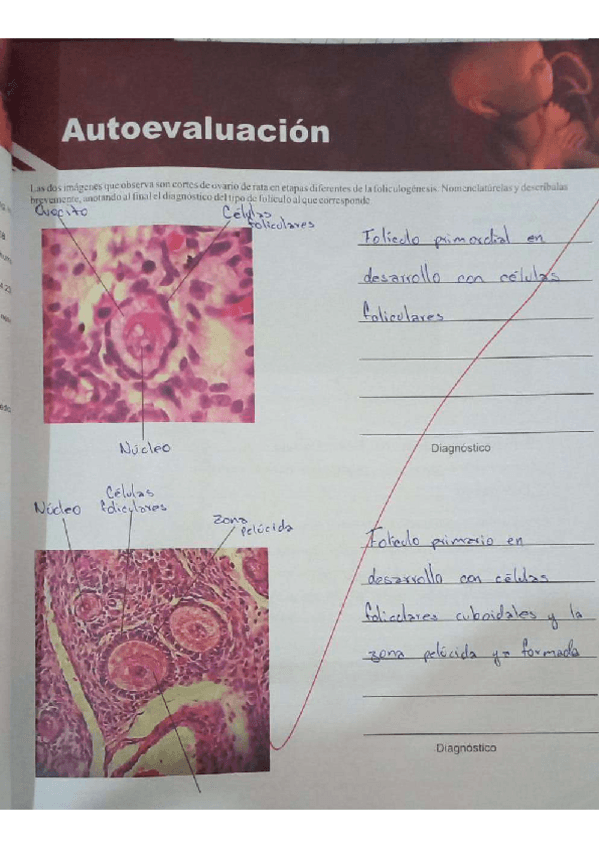 Autoevaluación
Las dos imágenes que observa son cortes de ovario de rata en etapas diferentes de la foliculogénesis. Nomenclatúrelas y descríbalas
brevemente, anotando al final el diagnóstico del tipo de folículo al que corresponde
Ovocito
Células
foliculares
Folículo primordial en
desarrollo con células
foliculares
Núcleo
Diagnóstico
Núcleo
Células
foliculares
Zona
pelúcida
Folículo primario en
desarrollo con células
foliculares cuboidales y la
zona pelúcida ya formada
Diagnóstico